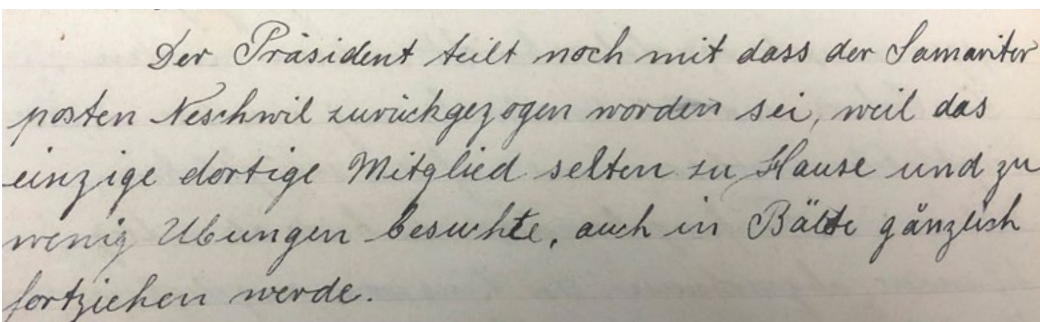 Der Präsident teilt noch mit dass der Samariter
posten Neschwil zurückgezogen worden sei, weil das
einzige dortige Mitglied selten zu Hause und zu
wenig Übungen besuchte, auch in Bälde gänzlich
fortziehen werde.